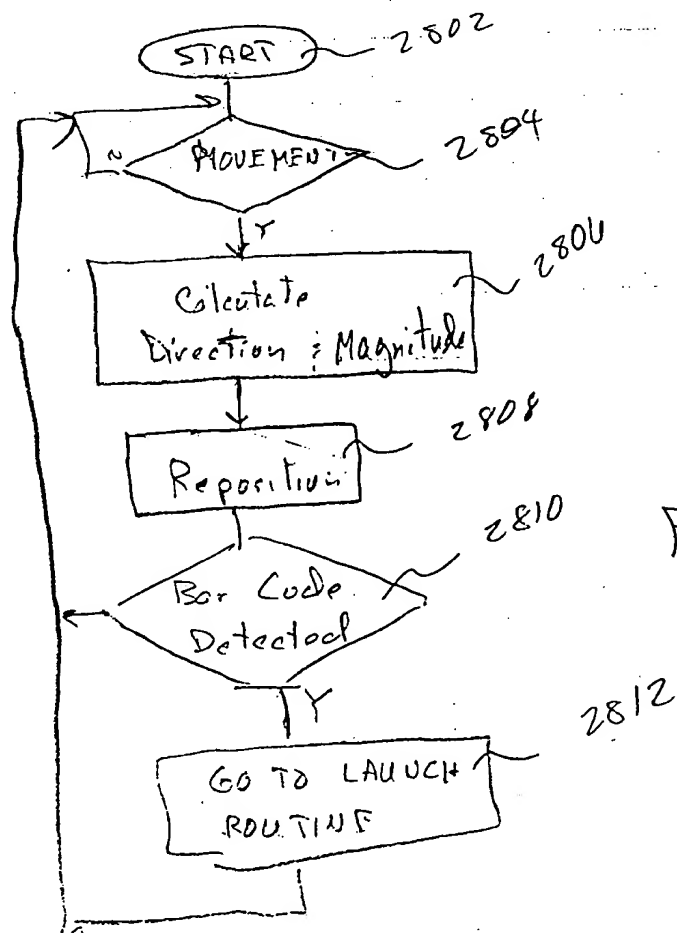 START
2802
MOVEMENT
2804
N
Y
Calculate
Direction & Magnitude
2806
Reposition
2808
Bar Code
Detected
2810
Y
GO TO LAUNCH
ROUTINE
2812
F